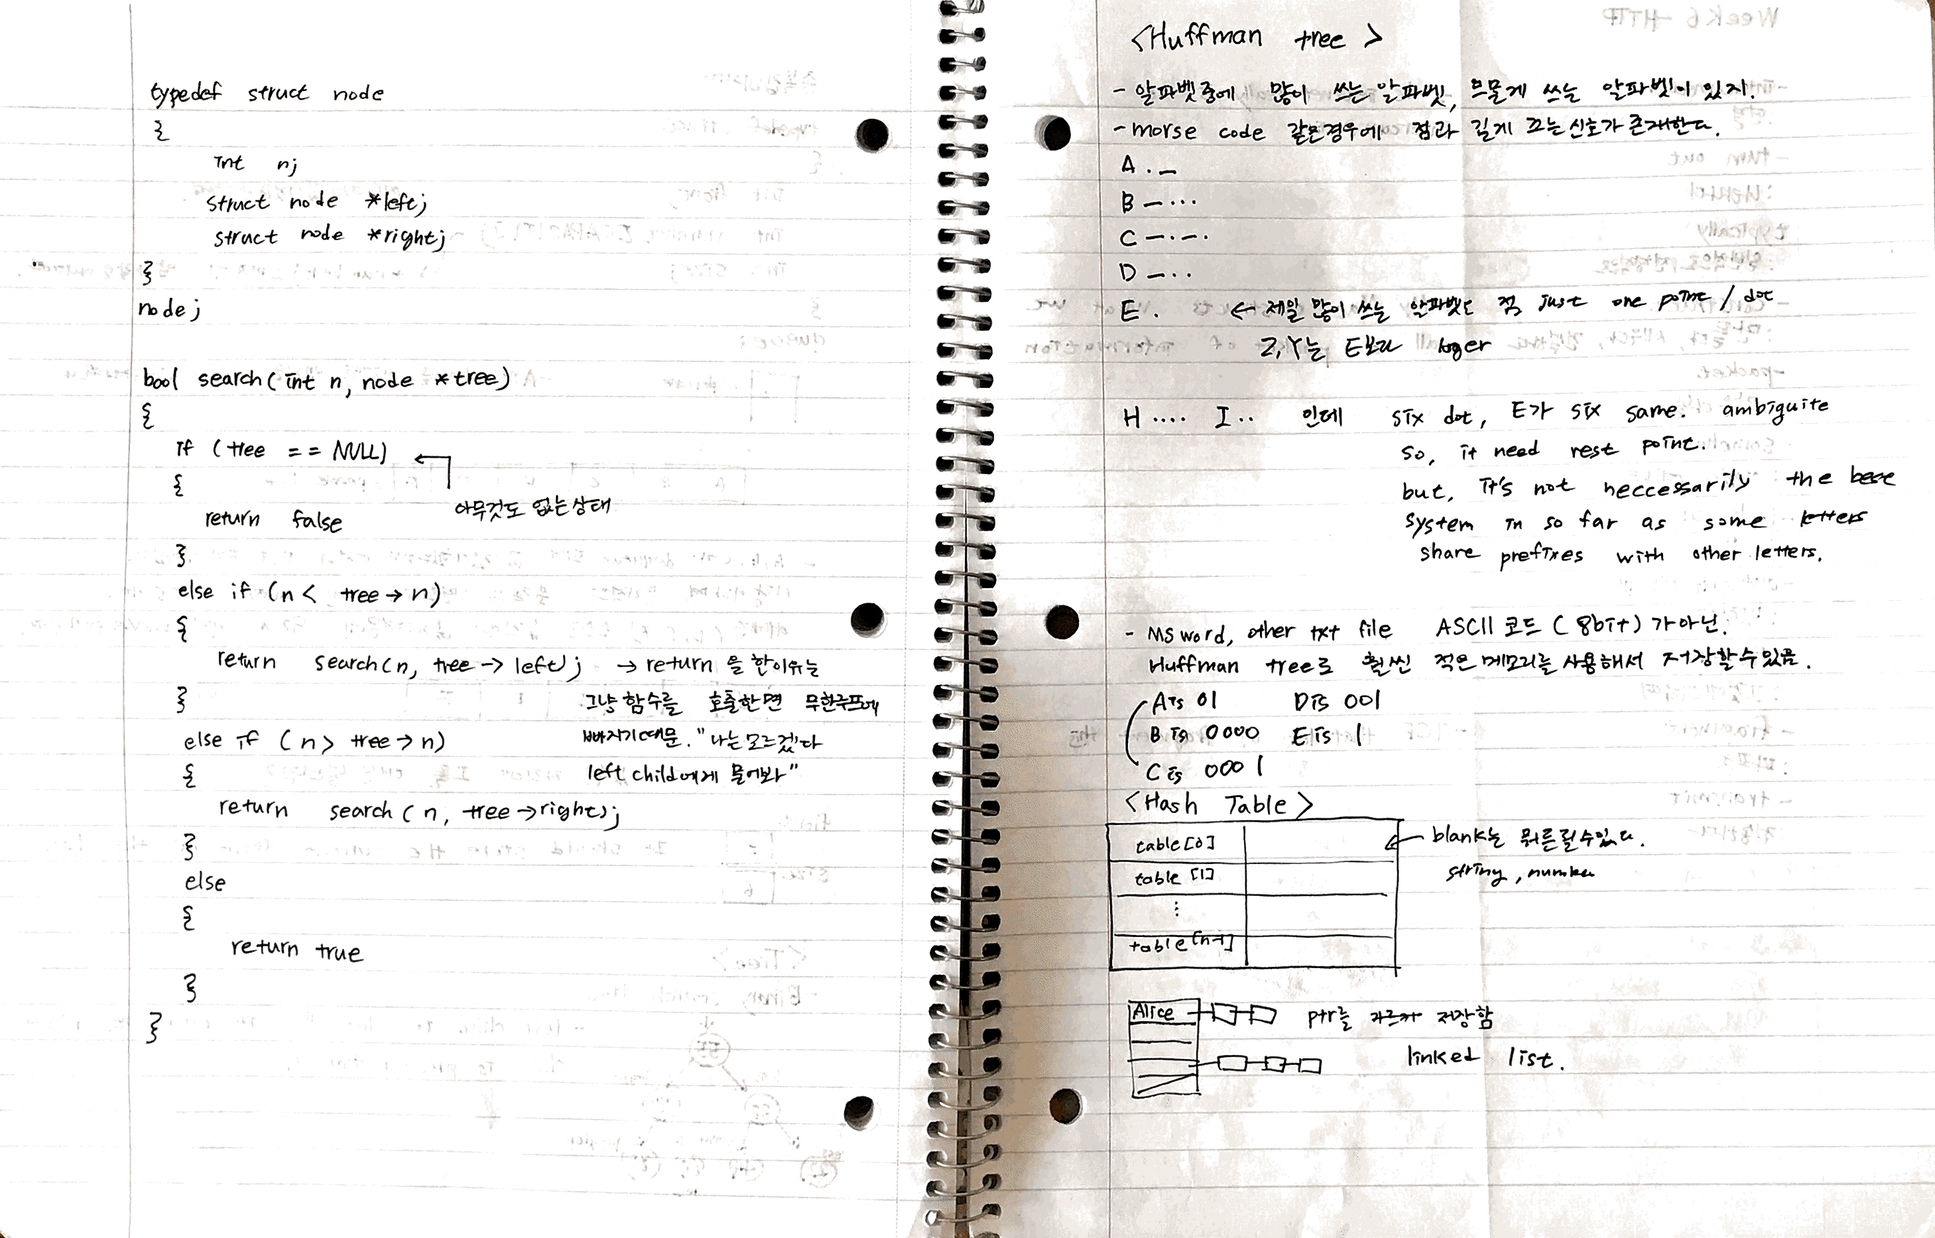 typedef struct node
{
int n;
struct node *left;
struct node *right;
}
node;
bool search(int n, node *tree)
{
if (tree == NULL)
{
아무것도 없는상태
return false
}
else if (n < tree → n)
{
return search(n, tree -> left); → return 을 한이유는
}
그냥 함수를 호출한면 무한루프에
else if (n > tree → n)
빠지기때문. "나는모르겠다
{
left child에게 물어봐"
return search(n, tree ->right);
}
else
{
return true
}
}
<Huffman tree>
- 알파벳중에 많이 쓰는 알파벳, 드물게 쓰는 알파벳이 있지.
- morse code 같은경우에 점과 길게 끄는신호가 존재한다.
A . —
B — . . .
C — . — .
D — . .
E . ← 제일 많이 쓰는 알파벳도 점 just one point / dot
Z, Y는 E보다
H .... I .. 인데 six dot, E가 six same. ambiguite
so, it need rest point.
but, it's not neccessarily the best
system in so far as some letters
share prefixes with other letters.
- MS word, other txt file ASCII 코드 (8bit) 가아닌.
Huffman tree로 훨씬 적은메모리를사용해서 저장할수있음.
A is 01 D is 001
B is 0000 E is 1
C is 0001
<Hash Table>
table[0] ← blank는 뭐든될수있다.
table [1] string, number
⋮
table[n-1]
Alice ptr를 저장함
linked list.